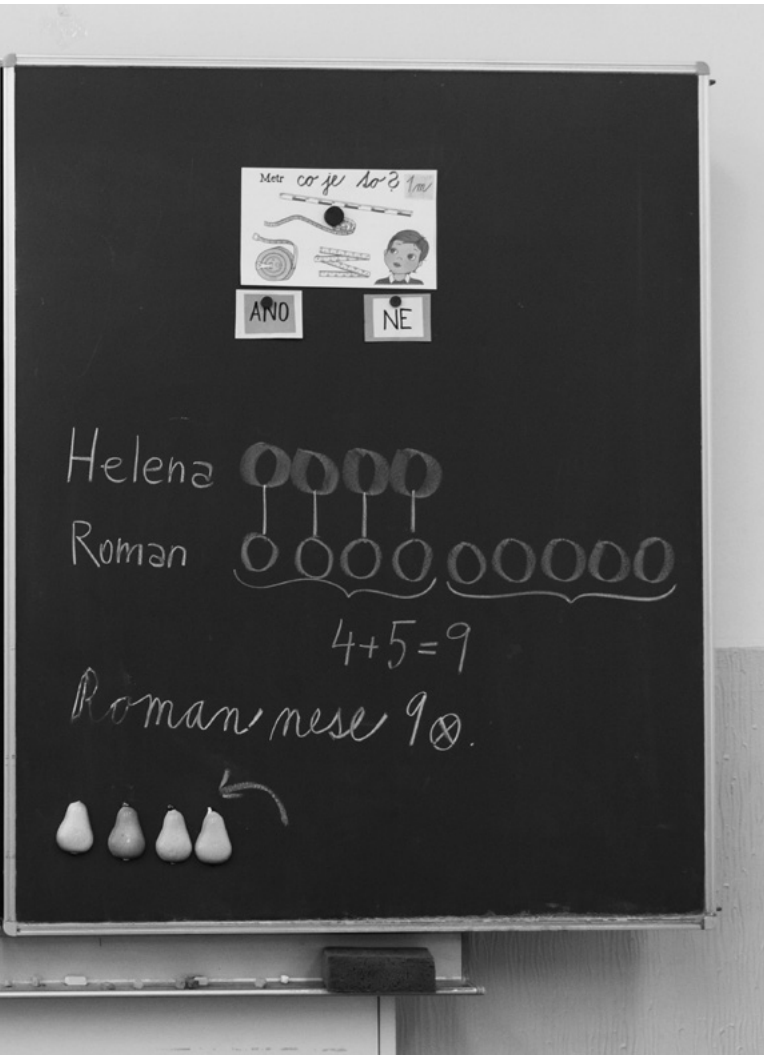 Metr co je to? 1m
ANO NE
Helena
Roman
4+5=9
Roman nese 9⊗.